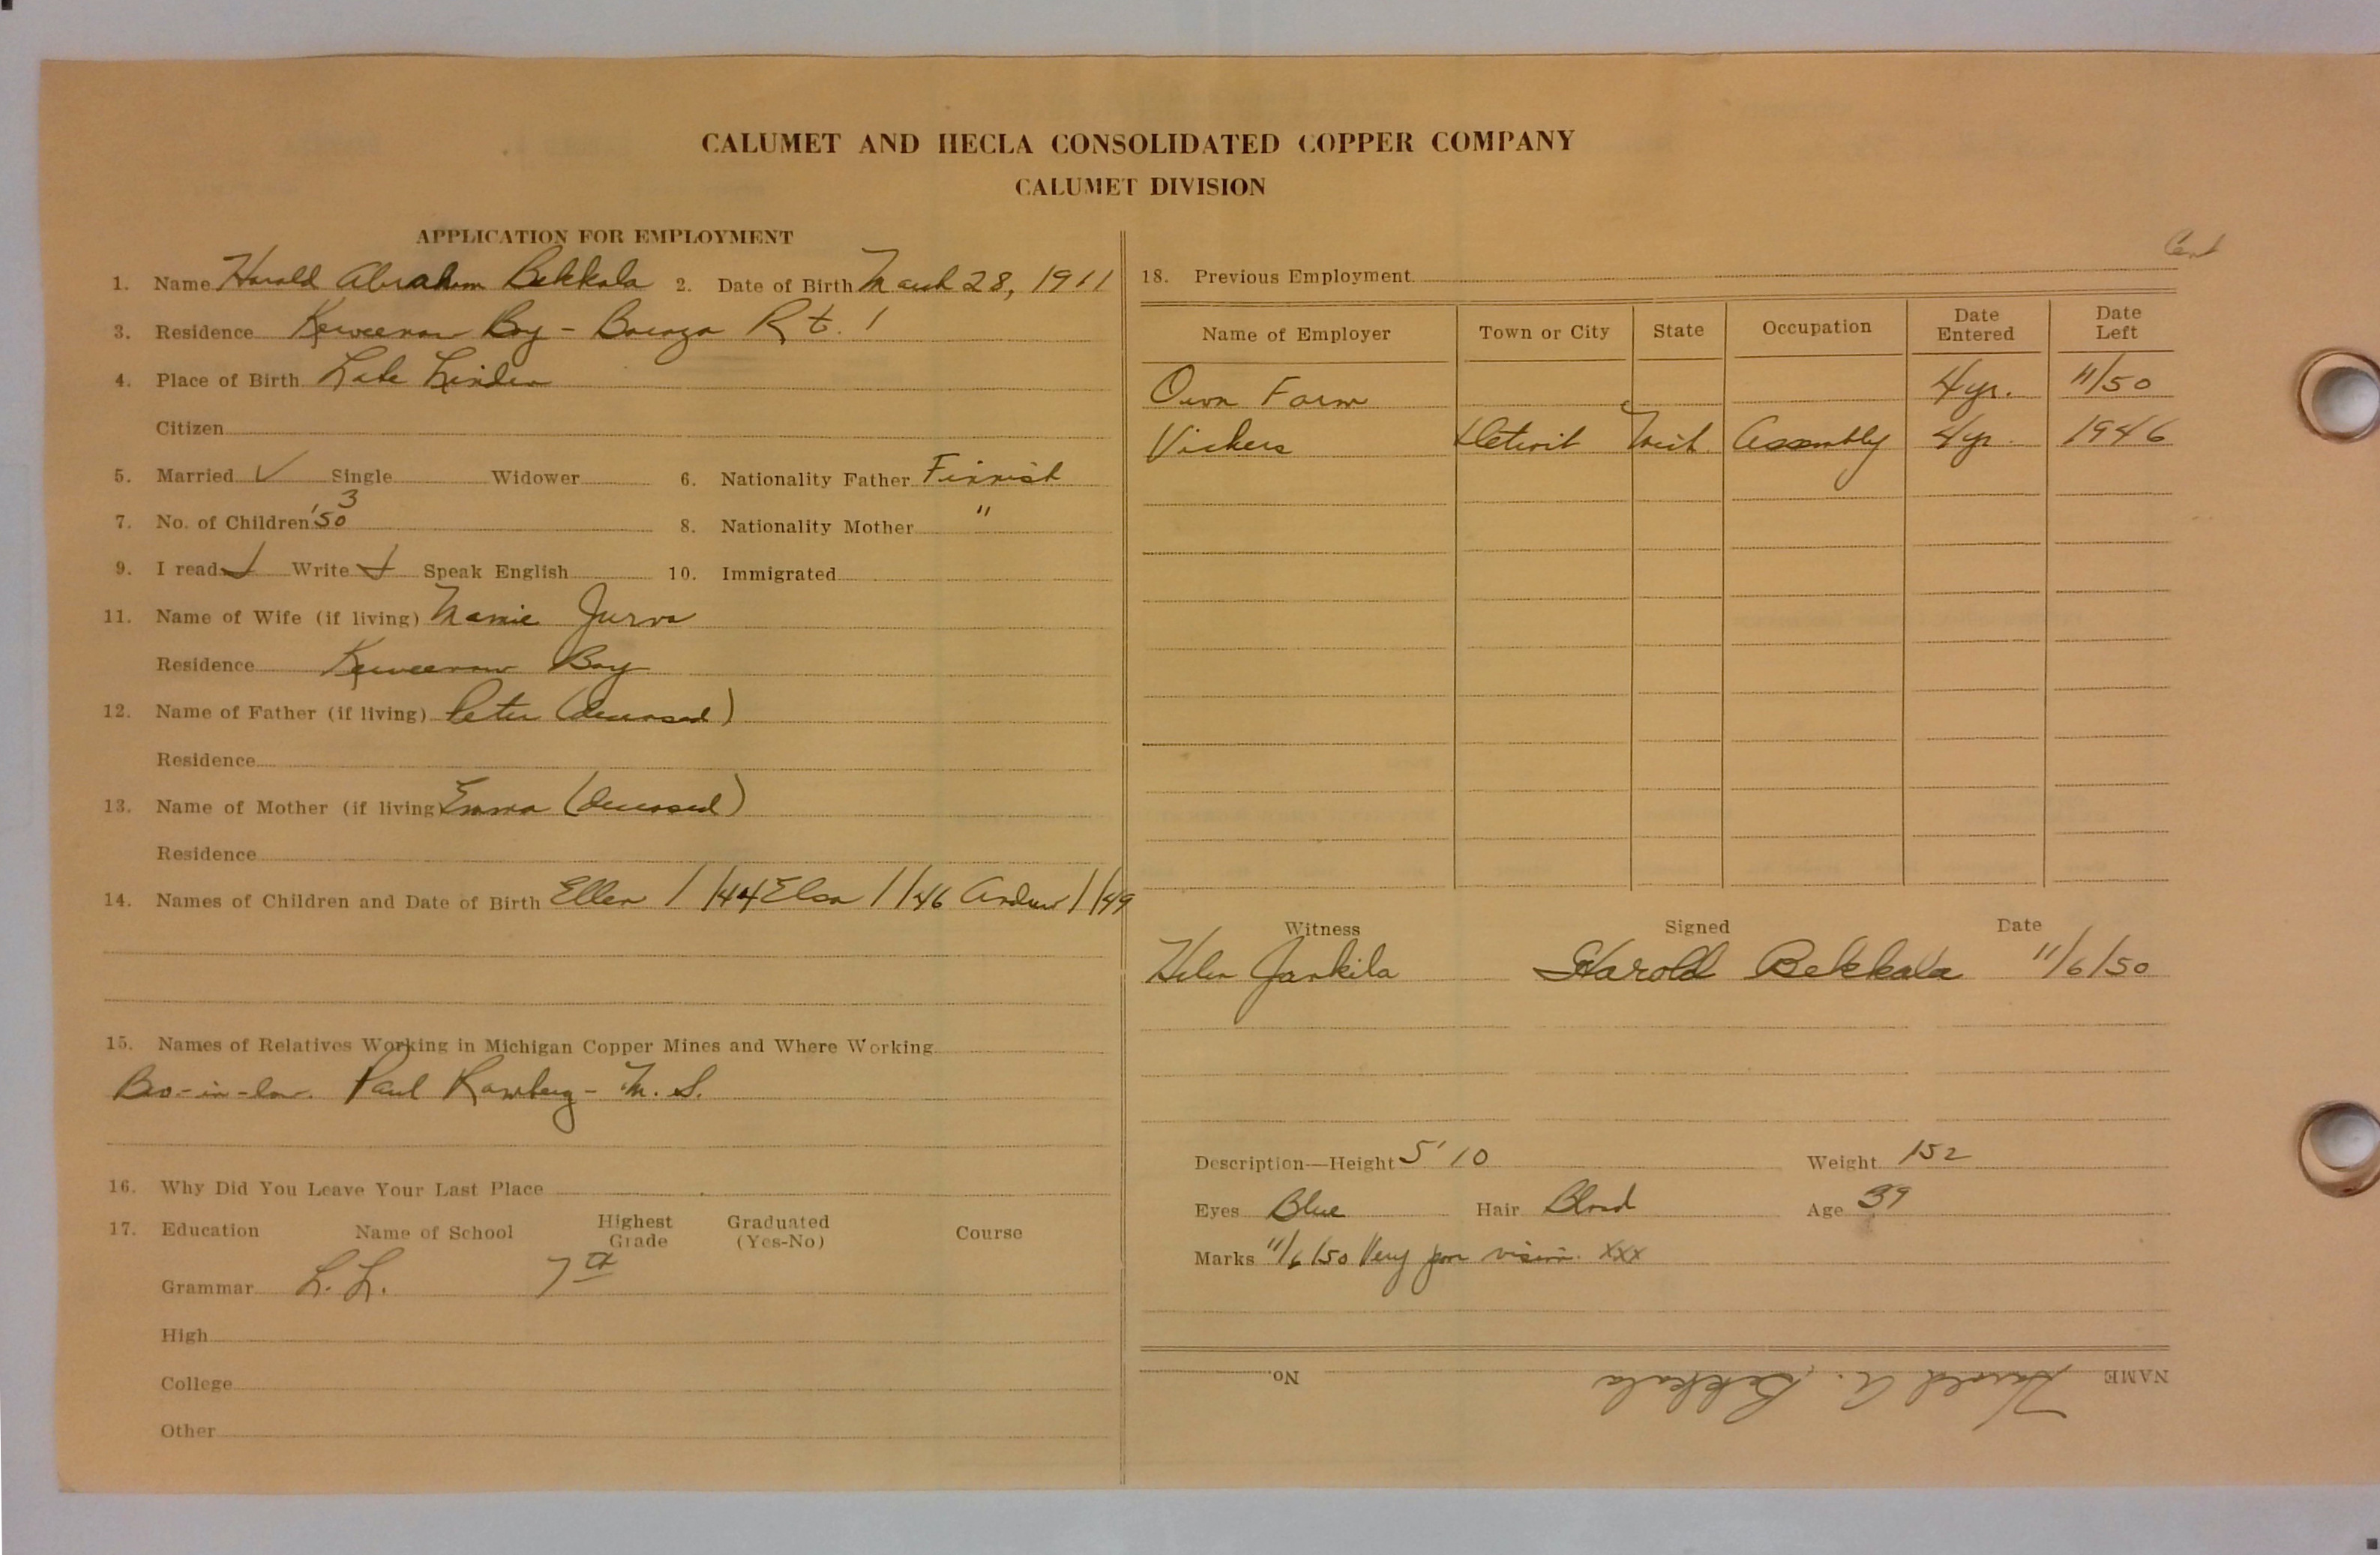 CALUMET AND HECLA CONSOLIDATED COPPER COMPANY
CALUMET DIVISION
APPLICATION FOR EMPLOYMENT
1. Name Harold Abraham Bekkala 2. Date of Birth March 28, 1911
3. Residence Keweenaw Bay - Baraga Rt. 1
4. Place of Birth Lake Linden
Citizen
5. Married ✓ Single Widower 6. Nationality Father Finnish
7. No. of Children '50 3 8. Nationality Mother "
9. I read ✓ Write ✓ Speak English 10. Immigrated
11. Name of Wife (if living) Mamie Jurva
Residence Keweenaw Bay
12. Name of Father (if living) Peter (deceased)
Residence
13. Name of Mother (if living) Emma (deceased)
Residence
14. Names of Children and Date of Birth Ellen 1/44 Elsa 1/46 Andrew 1/49
15. Names of Relatives Working in Michigan Copper Mines and Where Working
Bro-in-law. Paul - M. S.
16. Why Did You Leave Your Last Place
17. Education Name of School Highest Grade Graduated (Yes-No) Course
Grammar L. L. 7th
High
College
Other
Cent
18. Previous Employment
Name of Employer Town or City State Occupation Date Entered Date Left
Own Farm 4 yr. 11/50
Vickers Detroit Mich. Assembly 4 yr. 1946
Witness Signed Date
Helen Jankila Harold Bekkala 11/6/50
Description—Height 5' 10 Weight 152
Eyes Blue Hair Blond Age 39
Marks 11/6/50 Very poor vision. xxx
NAME Harold A. Bekkala No.